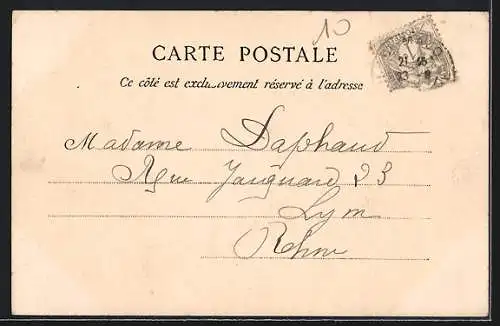 10
CARTE POSTALE
Ce côté est exclusivement réservé à l'adresse
Madame Daphaud
Rue Jacquard 23
Lyon
Rhône